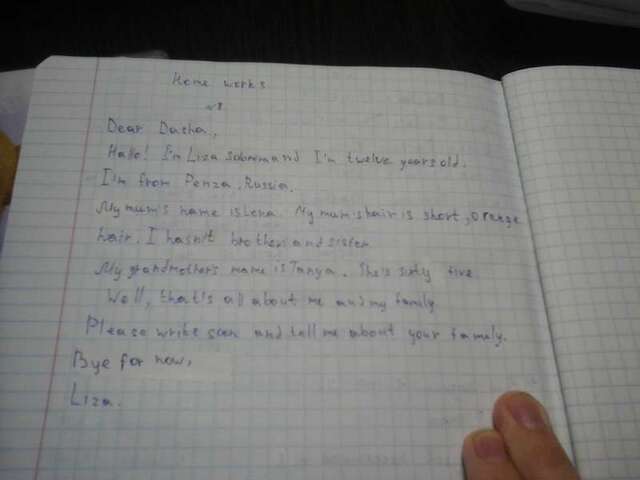 Home works
№3
Dear Dasha,
Hallo! I'm Liza and I'm twelve years old.
I'm from Penza, Russia.
My mum's name is Lena. My mum's hair is short, orange
hair. I hasn't brother and sister
My grandmother's name is Tanya. She is sixty five
Well, that's all about me and my family
Please write soon and tell me about your family.
Bye for now,
Liza.